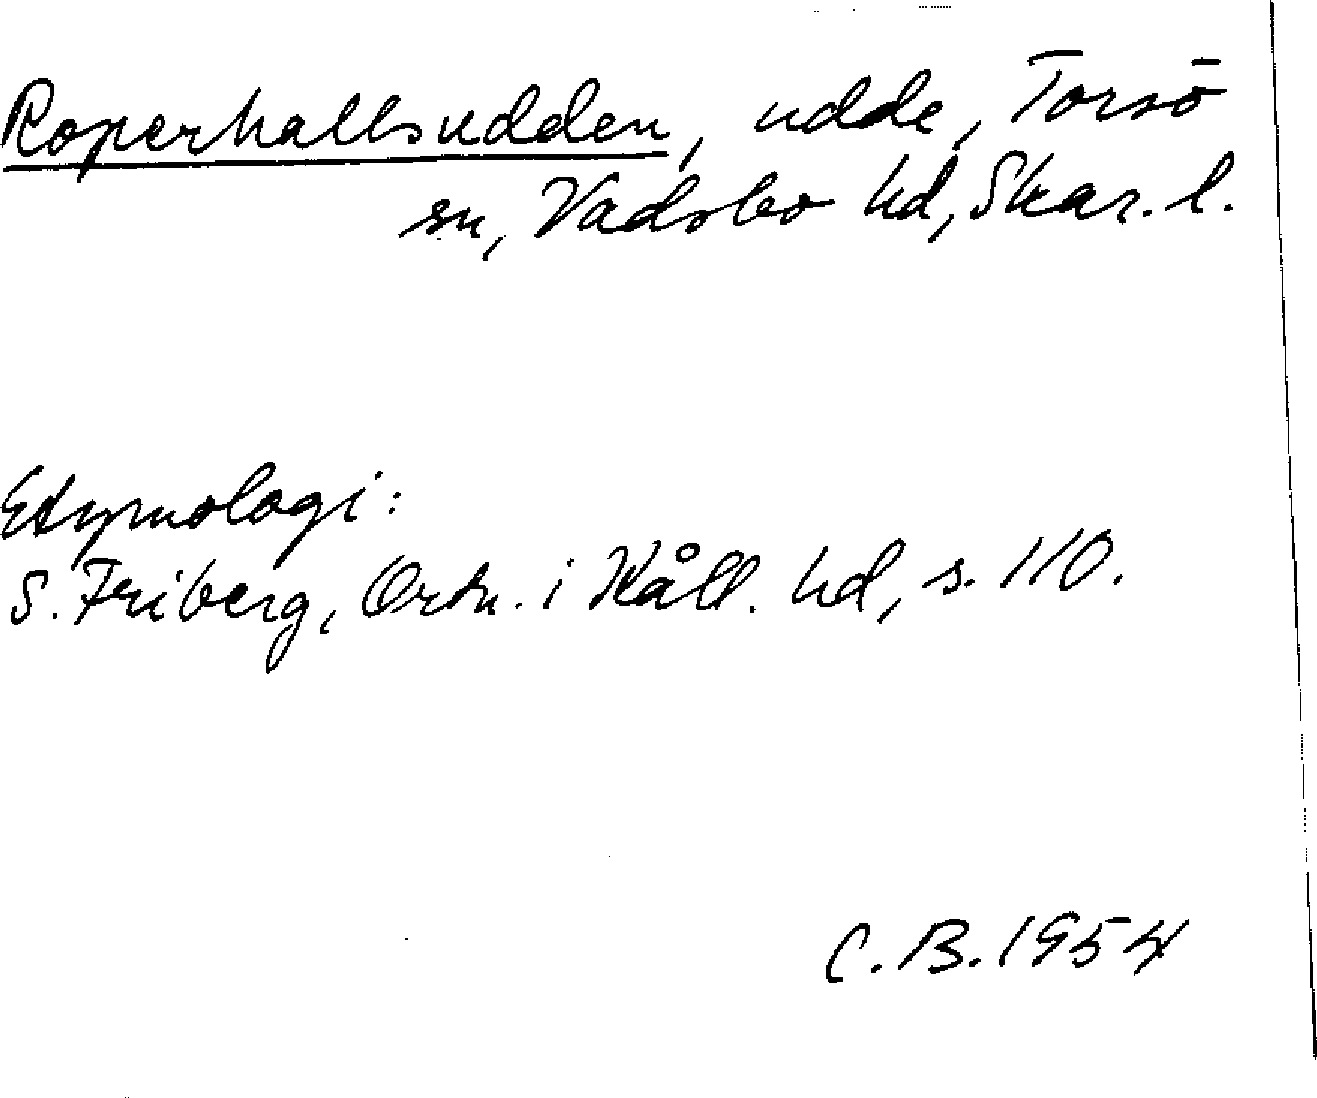 Roperhallsudden, udde, Torsö
sn, Vadsbo hd, Skar. l.
Etymologi:
S. Friberg, Ortn. i Kåll. hd, s. 110.
C. B. 1954